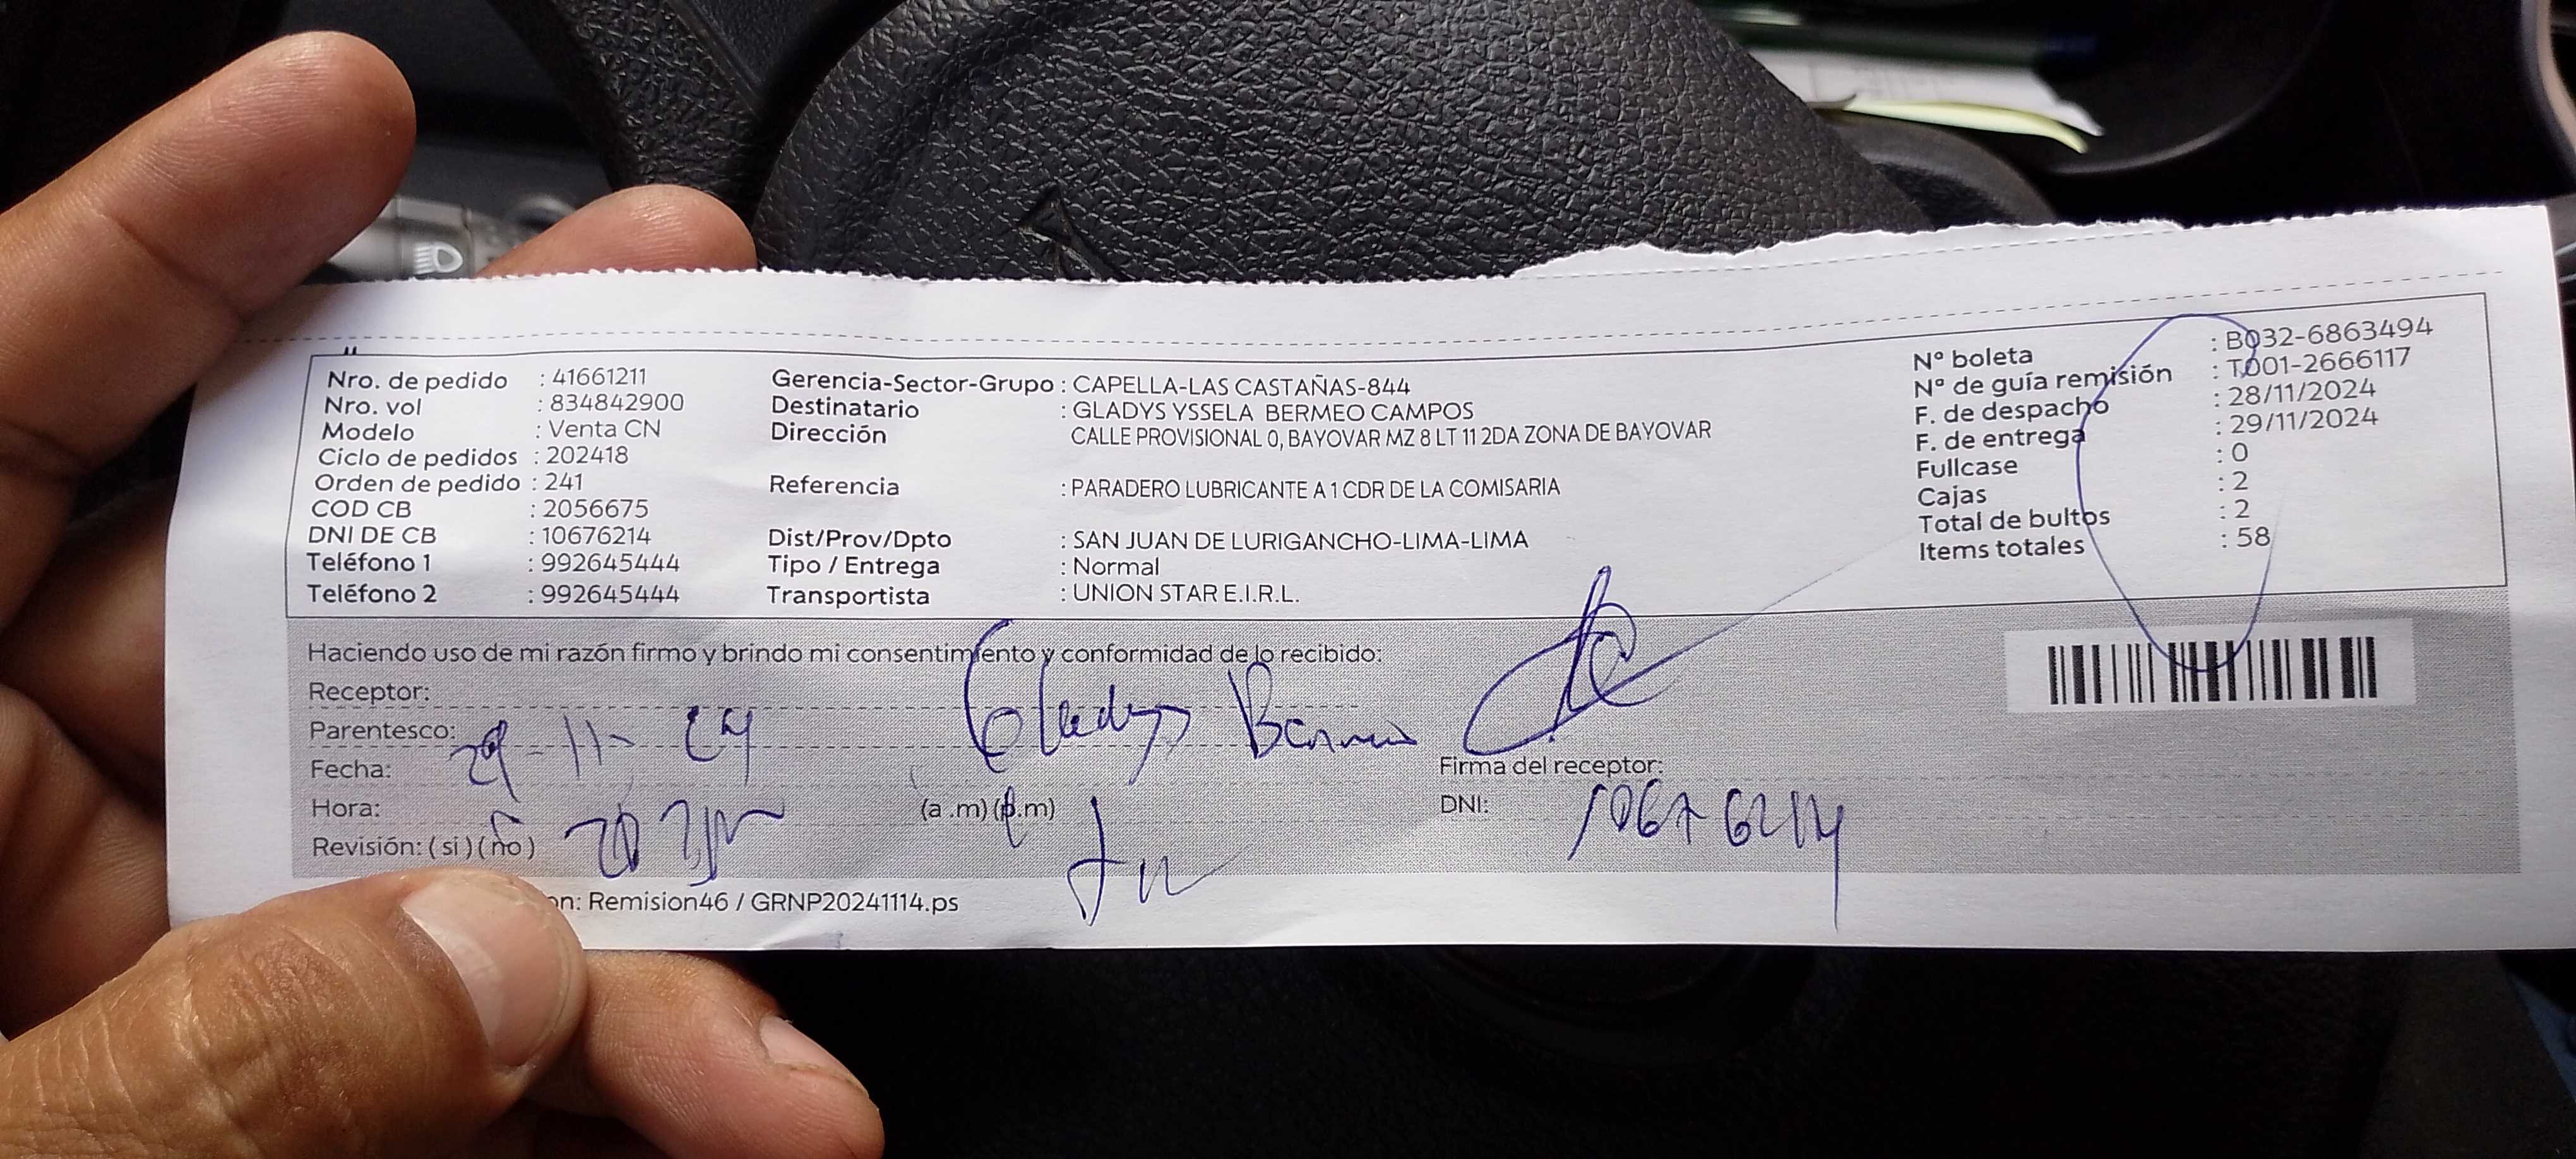 Nro. de pedido : 41661211
Nro. vol : 834842900
Modelo : Venta CN
Ciclo de pedidos : 202418
Orden de pedido : 241
COD CB : 2056675
DNI DE CB : 10676214
Teléfono 1 : 992645444
Teléfono 2 : 992645444
Gerencia-Sector-Grupo : CAPELLA-LAS CASTAÑAS-844
Destinatario : GLADYS YSSELA BERMEO CAMPOS
Dirección CALLE PROVISIONAL 0, BAYOVAR MZ 8 LT 11 2DA ZONA DE BAYOVAR
Referencia : PARADERO LUBRICANTE A 1 CDR DE LA COMISARIA
Dist/Prov/Dpto : SAN JUAN DE LURIGANCHO-LIMA-LIMA
Tipo / Entrega : Normal
Transportista : UNION STAR E.I.R.L.
Nº boleta : B032-6863494
Nº de guía remisión : T001-2666117
F. de despacho : 28/11/2024
F. de entrega : 29/11/2024
Fullcase : 0
Cajas : 2
Total de bultos : 2
Items totales : 58
Haciendo uso de mi razón firmo y brindo mi consentimiento y conformidad de lo recibido:
Receptor:
Parentesco: Gladys Bermeo
Fecha: 29-11-24
Firma del receptor:
Hora: (a .m) (p.m)
DNI: 10676214
Revisión: ( si ) ( no )
on: Remision46 / GRNP20241114.ps